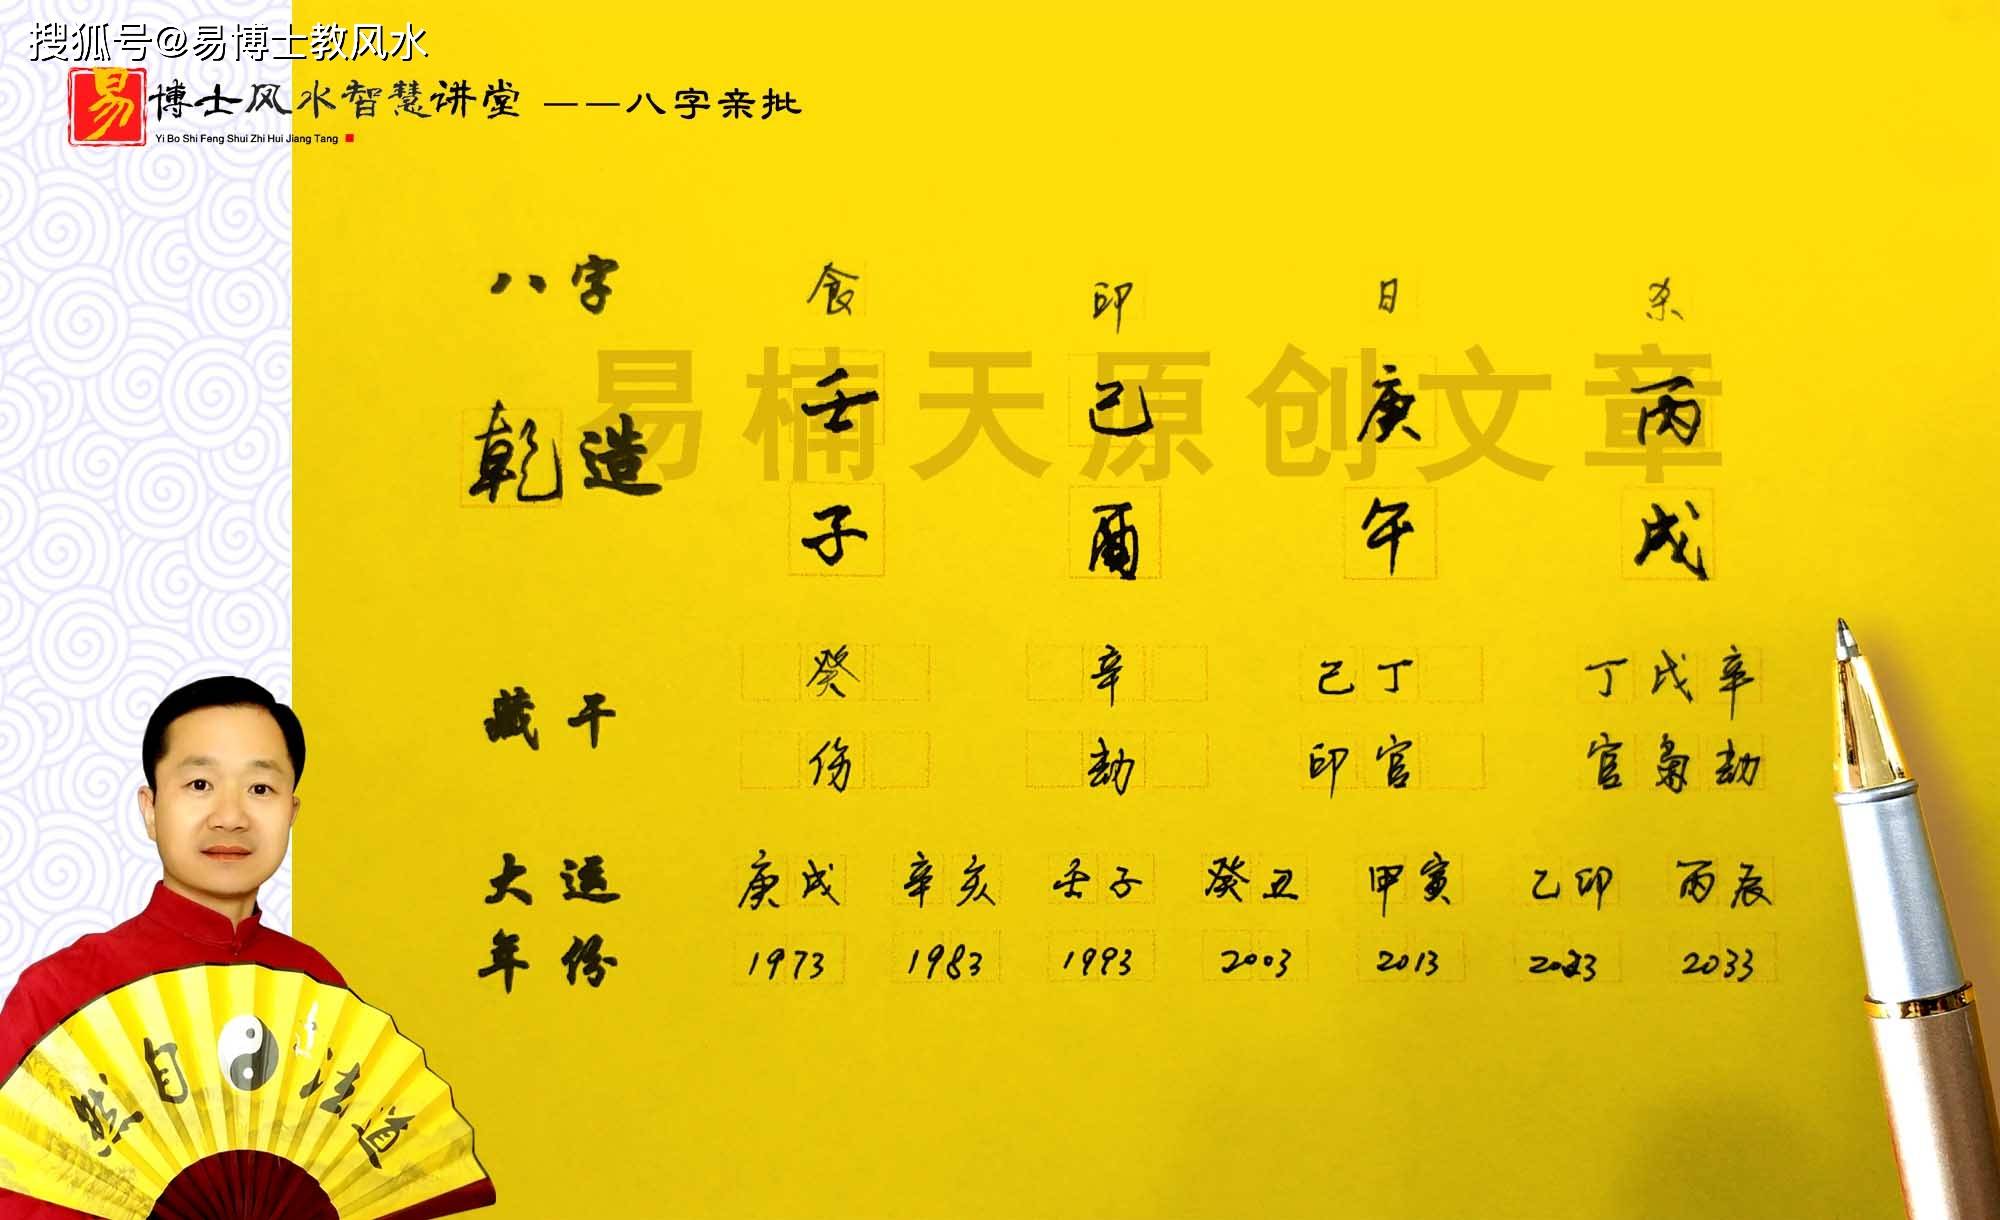 搜狐号@易博士教风水
易 博士风水智慧讲堂 ——八字亲批
Yi Bo Shi Feng Shui Zhi Hui Jiang Tang
八字 食 印 日 杀
易楠天原创文章
乾造 壬 己 庚 丙
子 酉 午 戌
癸 辛 己丁 丁戊辛
藏干
伤 劫 印官 官枭劫
大运 庚戌 辛亥 壬子 癸丑 甲寅 乙卯 丙辰
年份 1973 1983 1993 2003 2013 2023 2033
然自法道